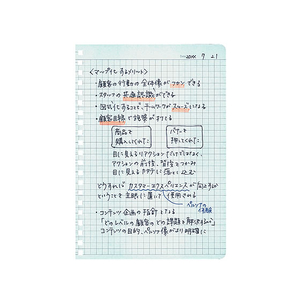 20XX 7 21
<マップ化するメリット>
・顧客の行動の全体像がつかできる
・スタッフの共通認識ができる
・図式化することで、チームワークがスムーズになる
・顧客目線で発想ができる
商品を
購入してくれた
バナーを
押してくれた
目に見えるリアクションだけではなく、
アクションの前後、習慣をつかみ
目に見えるカタチに落としこむ
どうすればカスタマーエクスペリエンスが向上するか
ということを主眼に置いて使用される
ペルソナの
・コンテンツ企画の指針となる
「どのレベルの顧客のどの課題を解決するか」
コンテンツの目的、ペルソナ像がより明確に